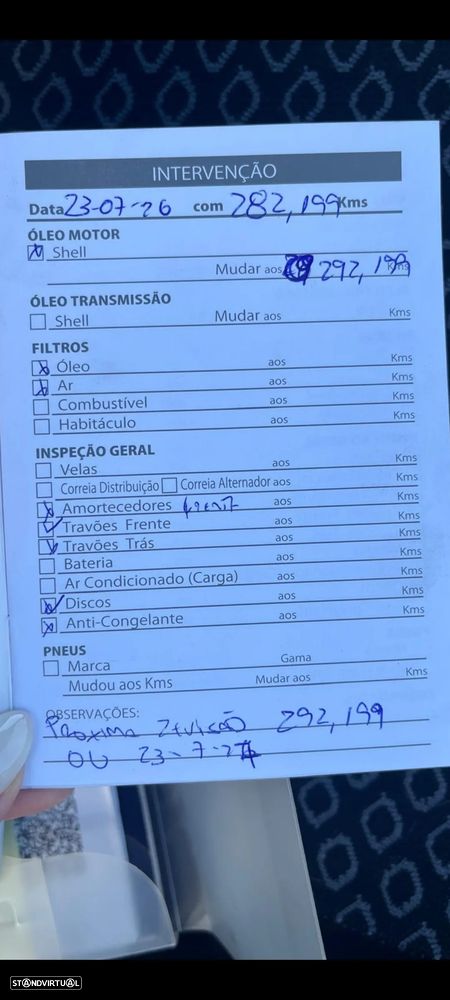 INTERVENÇÃO
Data 23-07-26 com 282,199 Kms
ÓLEO MOTOR
Shell
Mudar aos 292,199 Kms
ÓLEO TRANSMISSÃO
Shell Mudar aos Kms
FILTROS
Óleo aos Kms
Ar aos Kms
Combustível aos Kms
Habitáculo aos Kms
INSPEÇÃO GERAL
Velas aos Kms
Correia Distribuição Correia Alternador aos Kms
Amortecedores aos Kms
Travões Frente aos Kms
Travões Trás aos Kms
Bateria aos Kms
Ar Condicionado (Carga) aos Kms
Discos aos Kms
Anti-Congelante aos Kms
PNEUS
Marca Gama
Mudou aos Kms Mudar aos Kms
OBSERVAÇÕES:
Proxima Revisão 292,199
OU 23-7-27
STANDVIRTUAL